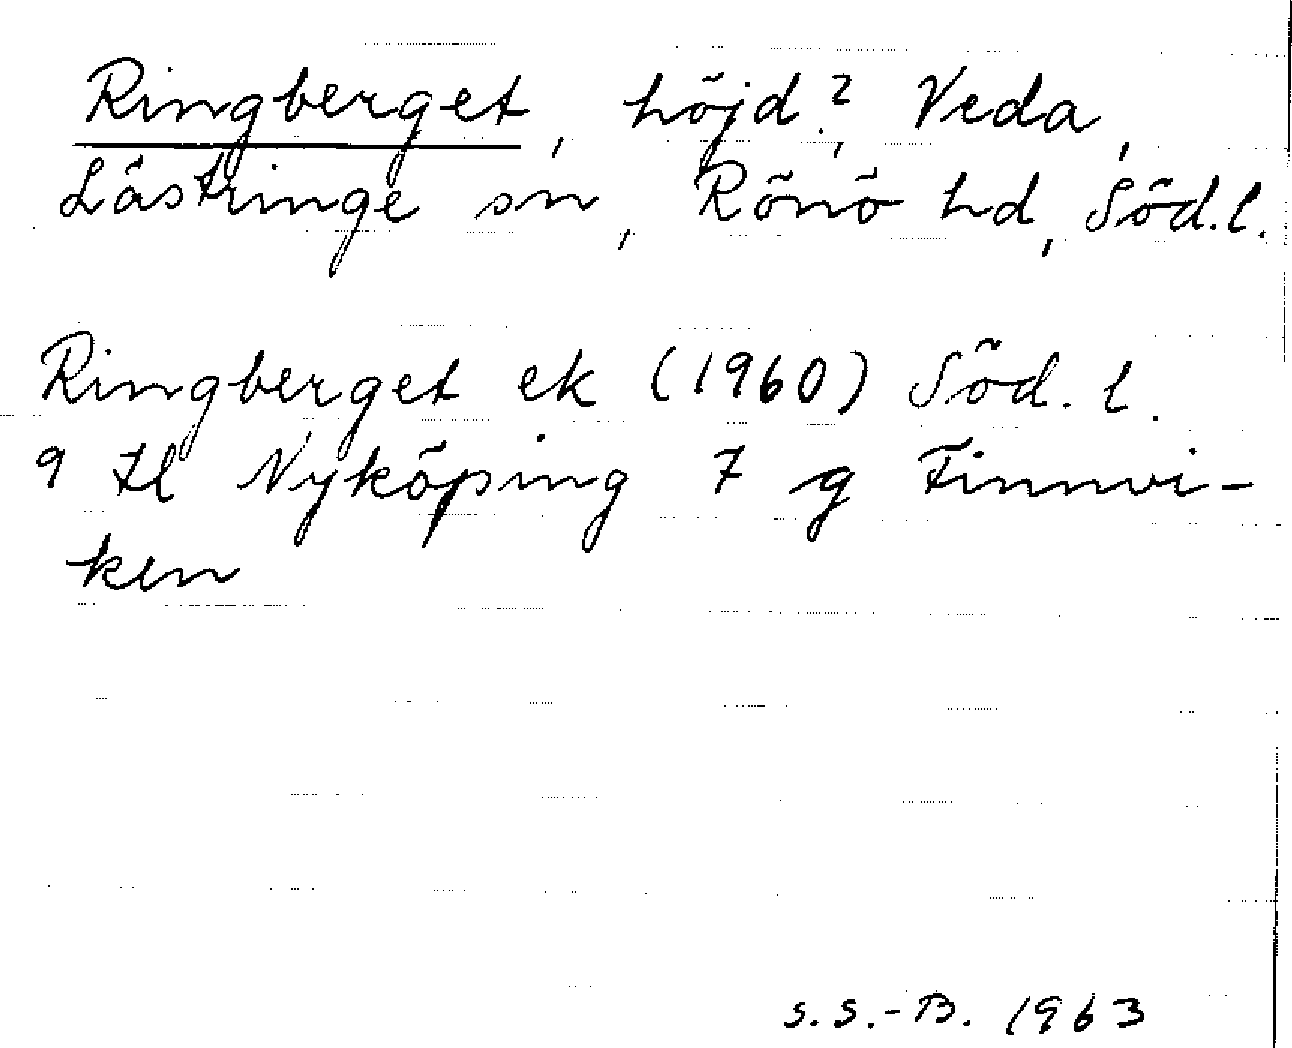 Ringberget, höjd?, Veda,
Lästringe sn, Rönö hd, Söd.l.
Ringberget ek (1960) Söd. l.
9 Il Nyköping 7 g Finnvi-
ken
S.S.-B. 1963